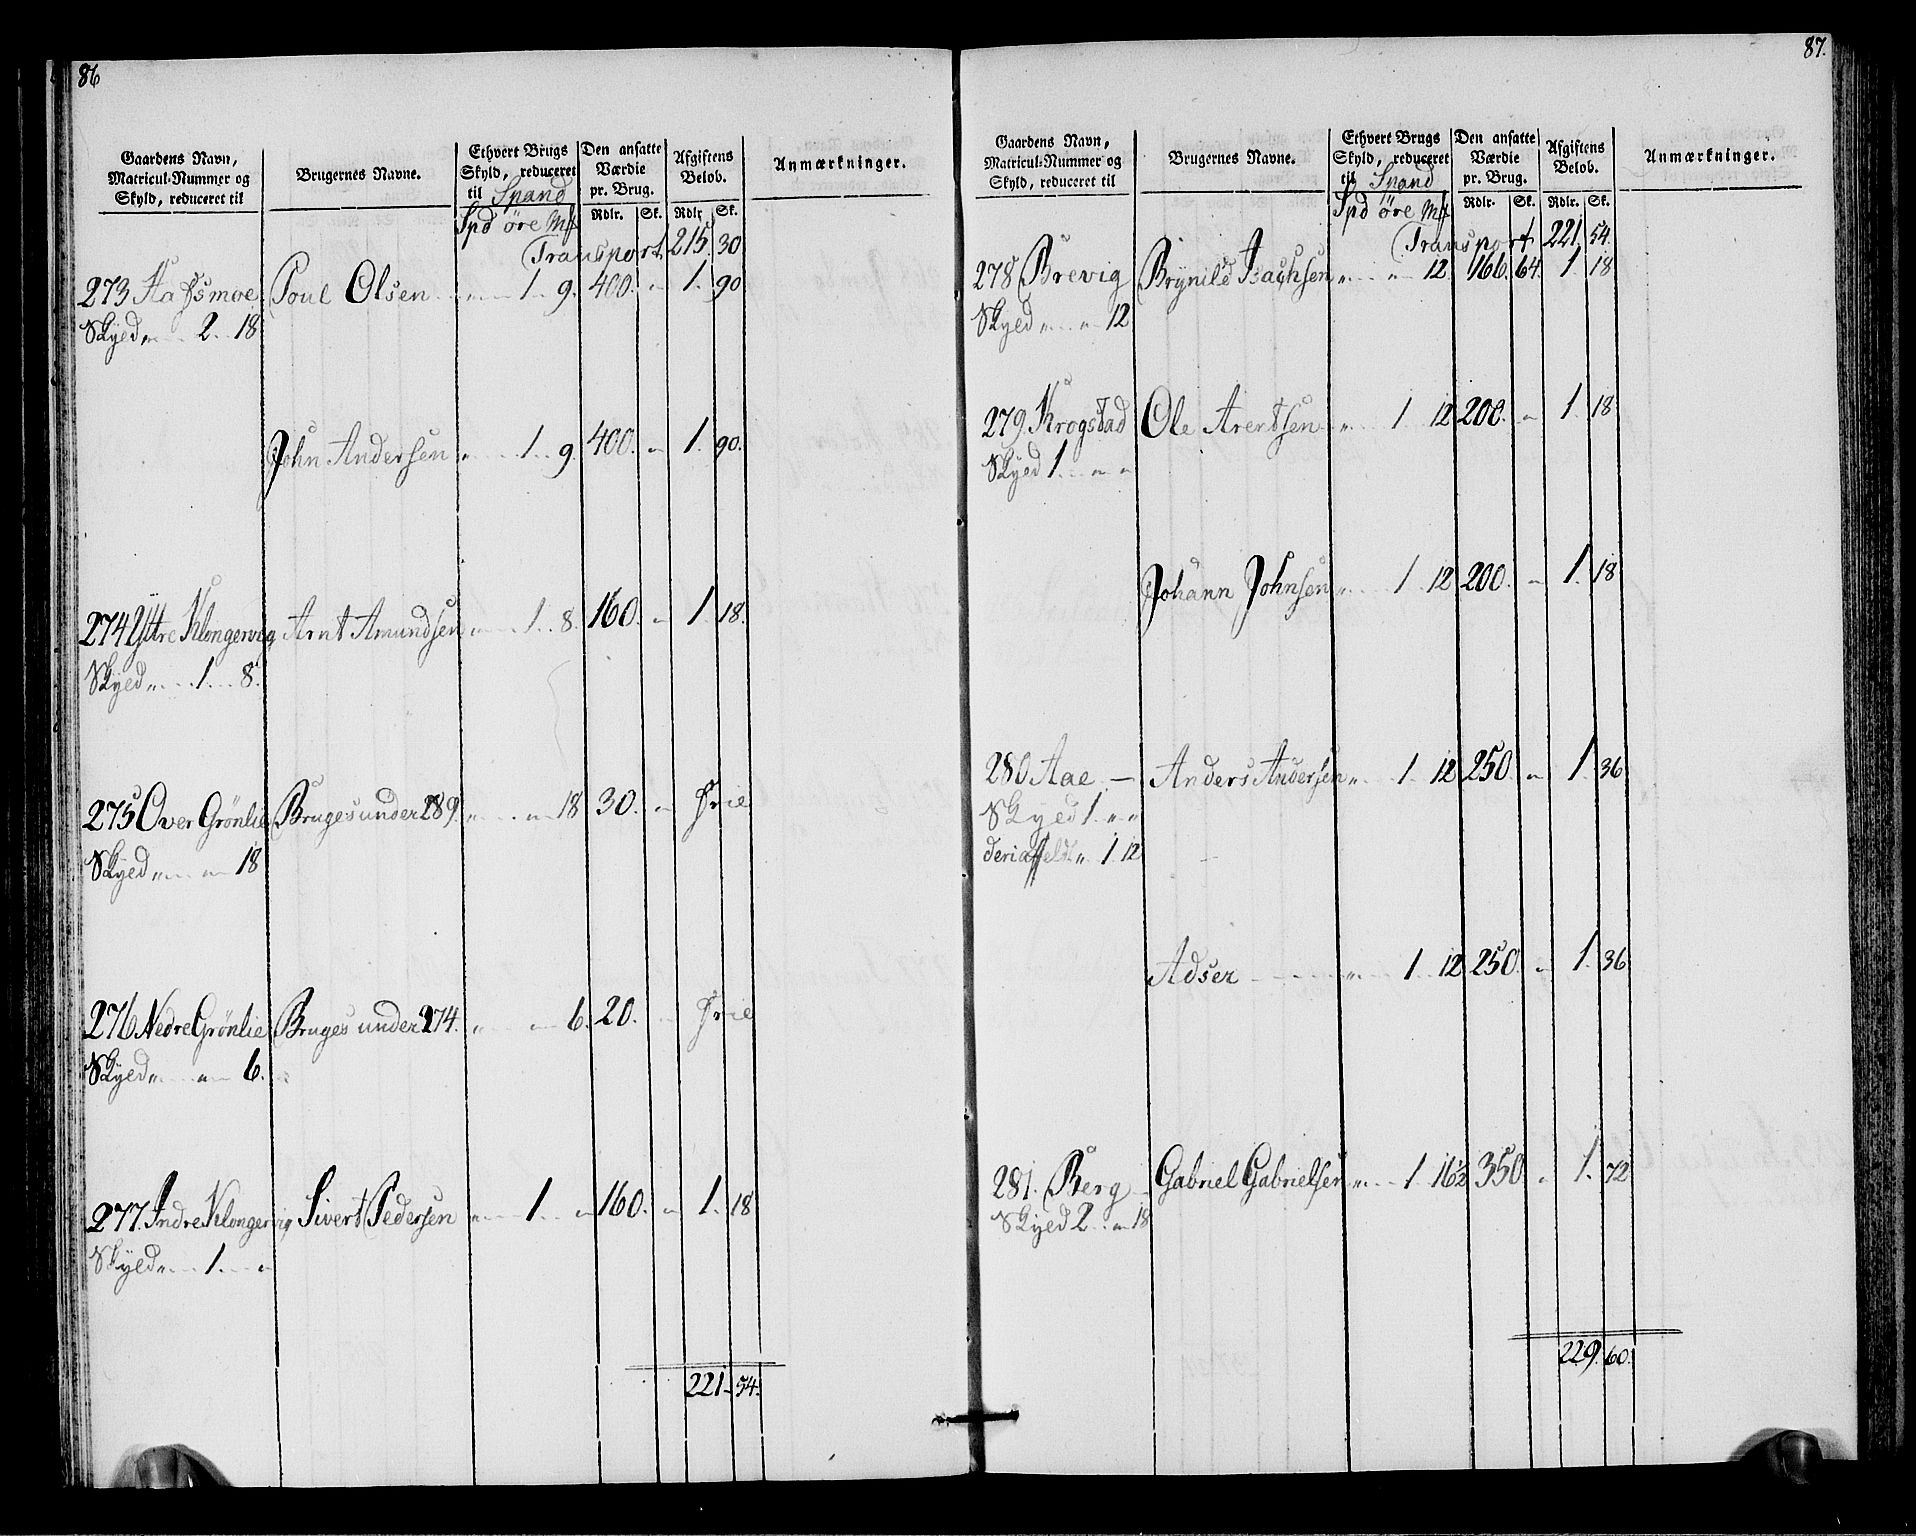 86
Gaardens Navn, Matricul-Nummer og Skyld, reduceret til
Brugernes Navne.
Ethvert Brugs Skyld, reduceret til Spand
Den ansatte Værdie pr. Brug.
Afgiftens Belob.
Anmærkninger.
Spd öre Mk Rdlr. Sk. Rdlr Sk.
Transport 215. 30
273 Poul Olsen „ 1 9. 400. „ 1. 90
Skyld „ 2 18
John Andersen „ 1 9. 400. „ 1. 90.
274 Yttre Klongervig, Arnt Amundsen „ 1 8. 160. „ 1. 18.
Skyed „ 1 8.
275 Over Grönlie Bruges under 289. „ „ 18 30. „ Frie
Skyed „ „ 18
276 Nedre Grönlie Bruges under 274. „ „ 6. 20. Frie
Skyed „ „ 6.
277. Indre Klongervig Sivert Pedersen „ 1 „ 160. „ 1. 18
Skyld „ 1 „
221. 54.
87.
Gaardens Navn, Matricul-Nummer og Skyld, reduceret til
Brugernes Navne.
Ethvert Brugs Skyld, reduceret til Spand
Den ansatte Værdie pr. Brug.
Afgiftens Belob.
Anmærkninger.
Spd öre Mk Rdlr. Sk. Rdlr. Sk.
Transport 221. 54.
278 Brevig Brynild Isachsen „ „ 12 166. 64. 1. 18
Skyed „ „ 12
279. Krogstad Ole Arentsen „ 1 12 200. „ 1. 18
Skyed 1 „ „
Johann Johnsen „ 1 12 200. „ 1. 18
280 Aae — Anders Andersen „ 1 12 250. „ 1. 36
Skyed 1 „ „
„ 1 12
Adser „ 1 12 250. „ 1. 36
281. Berg Gabriel Gabrielsen „ 1 16½ 350 „ 1. 72
Skyed 2 „ 18
229. 60.